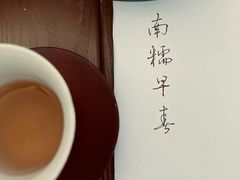 南糯早春